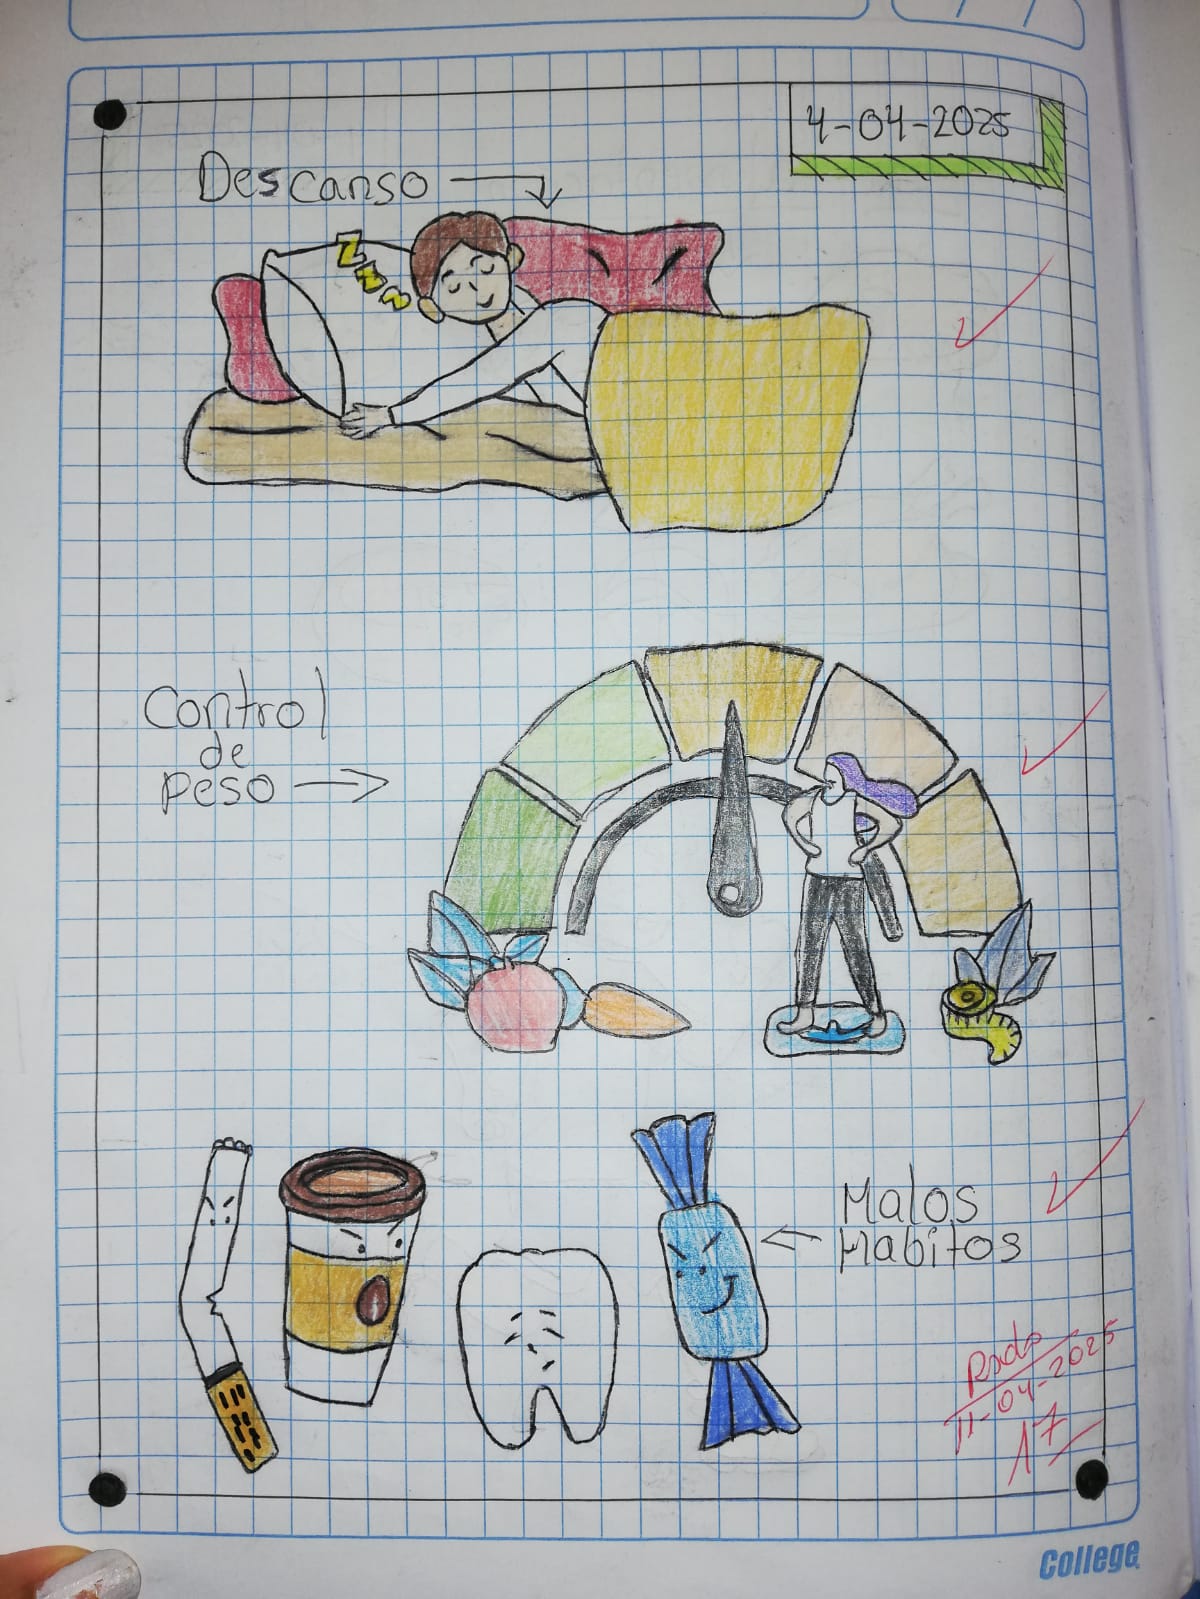 4-04-2025
Descanso
Z
Z
Z
Control
de
peso
Malos
Habitos
Rxdo
11-04-2025
17
College